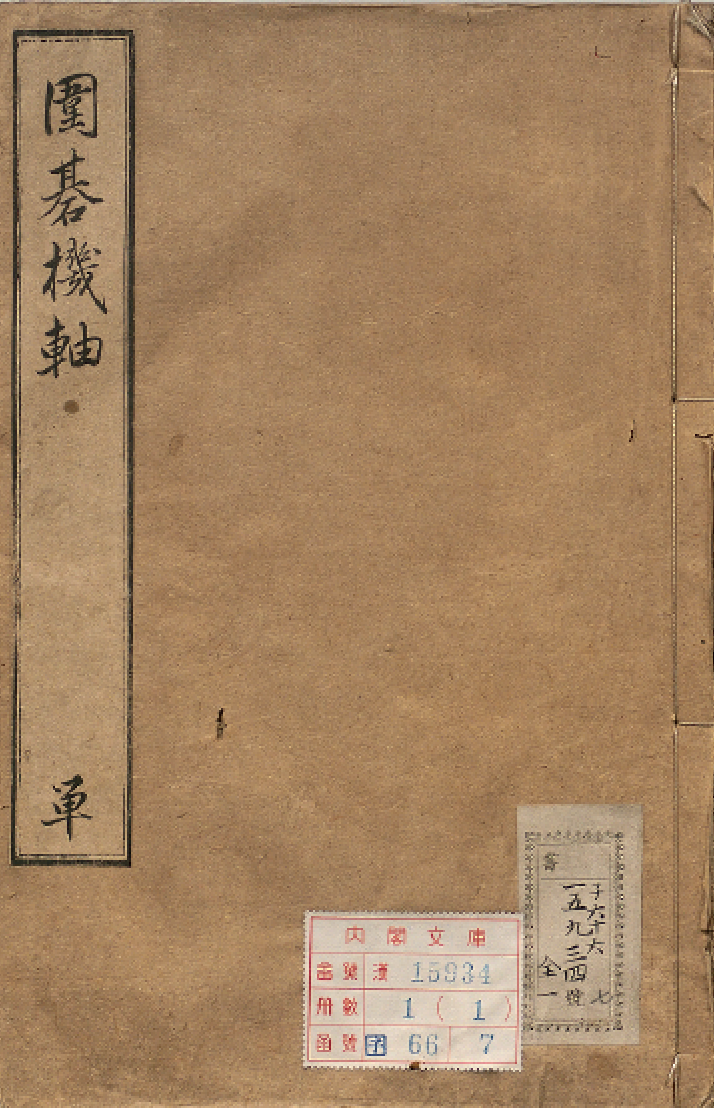 圍碁機軸
単
内閣文庫
番號 漢 15934
冊數 1 ( 1 )
函號 子 66 7
子六十六
一五九三四號
全一
七